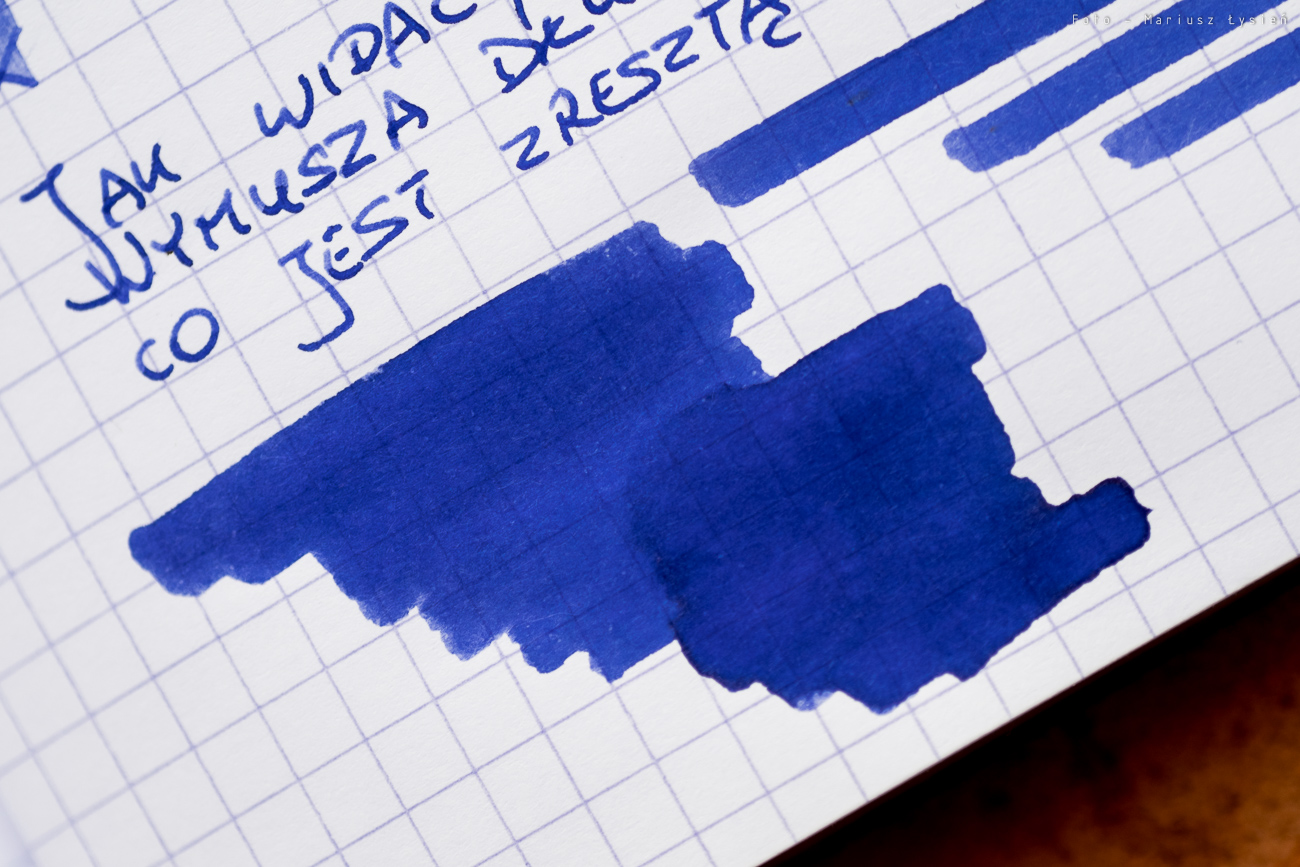 Foto - Mariusz Łysień
JAK WIDAĆ
WYMUSZA
CO JEST ZRESZTĄ